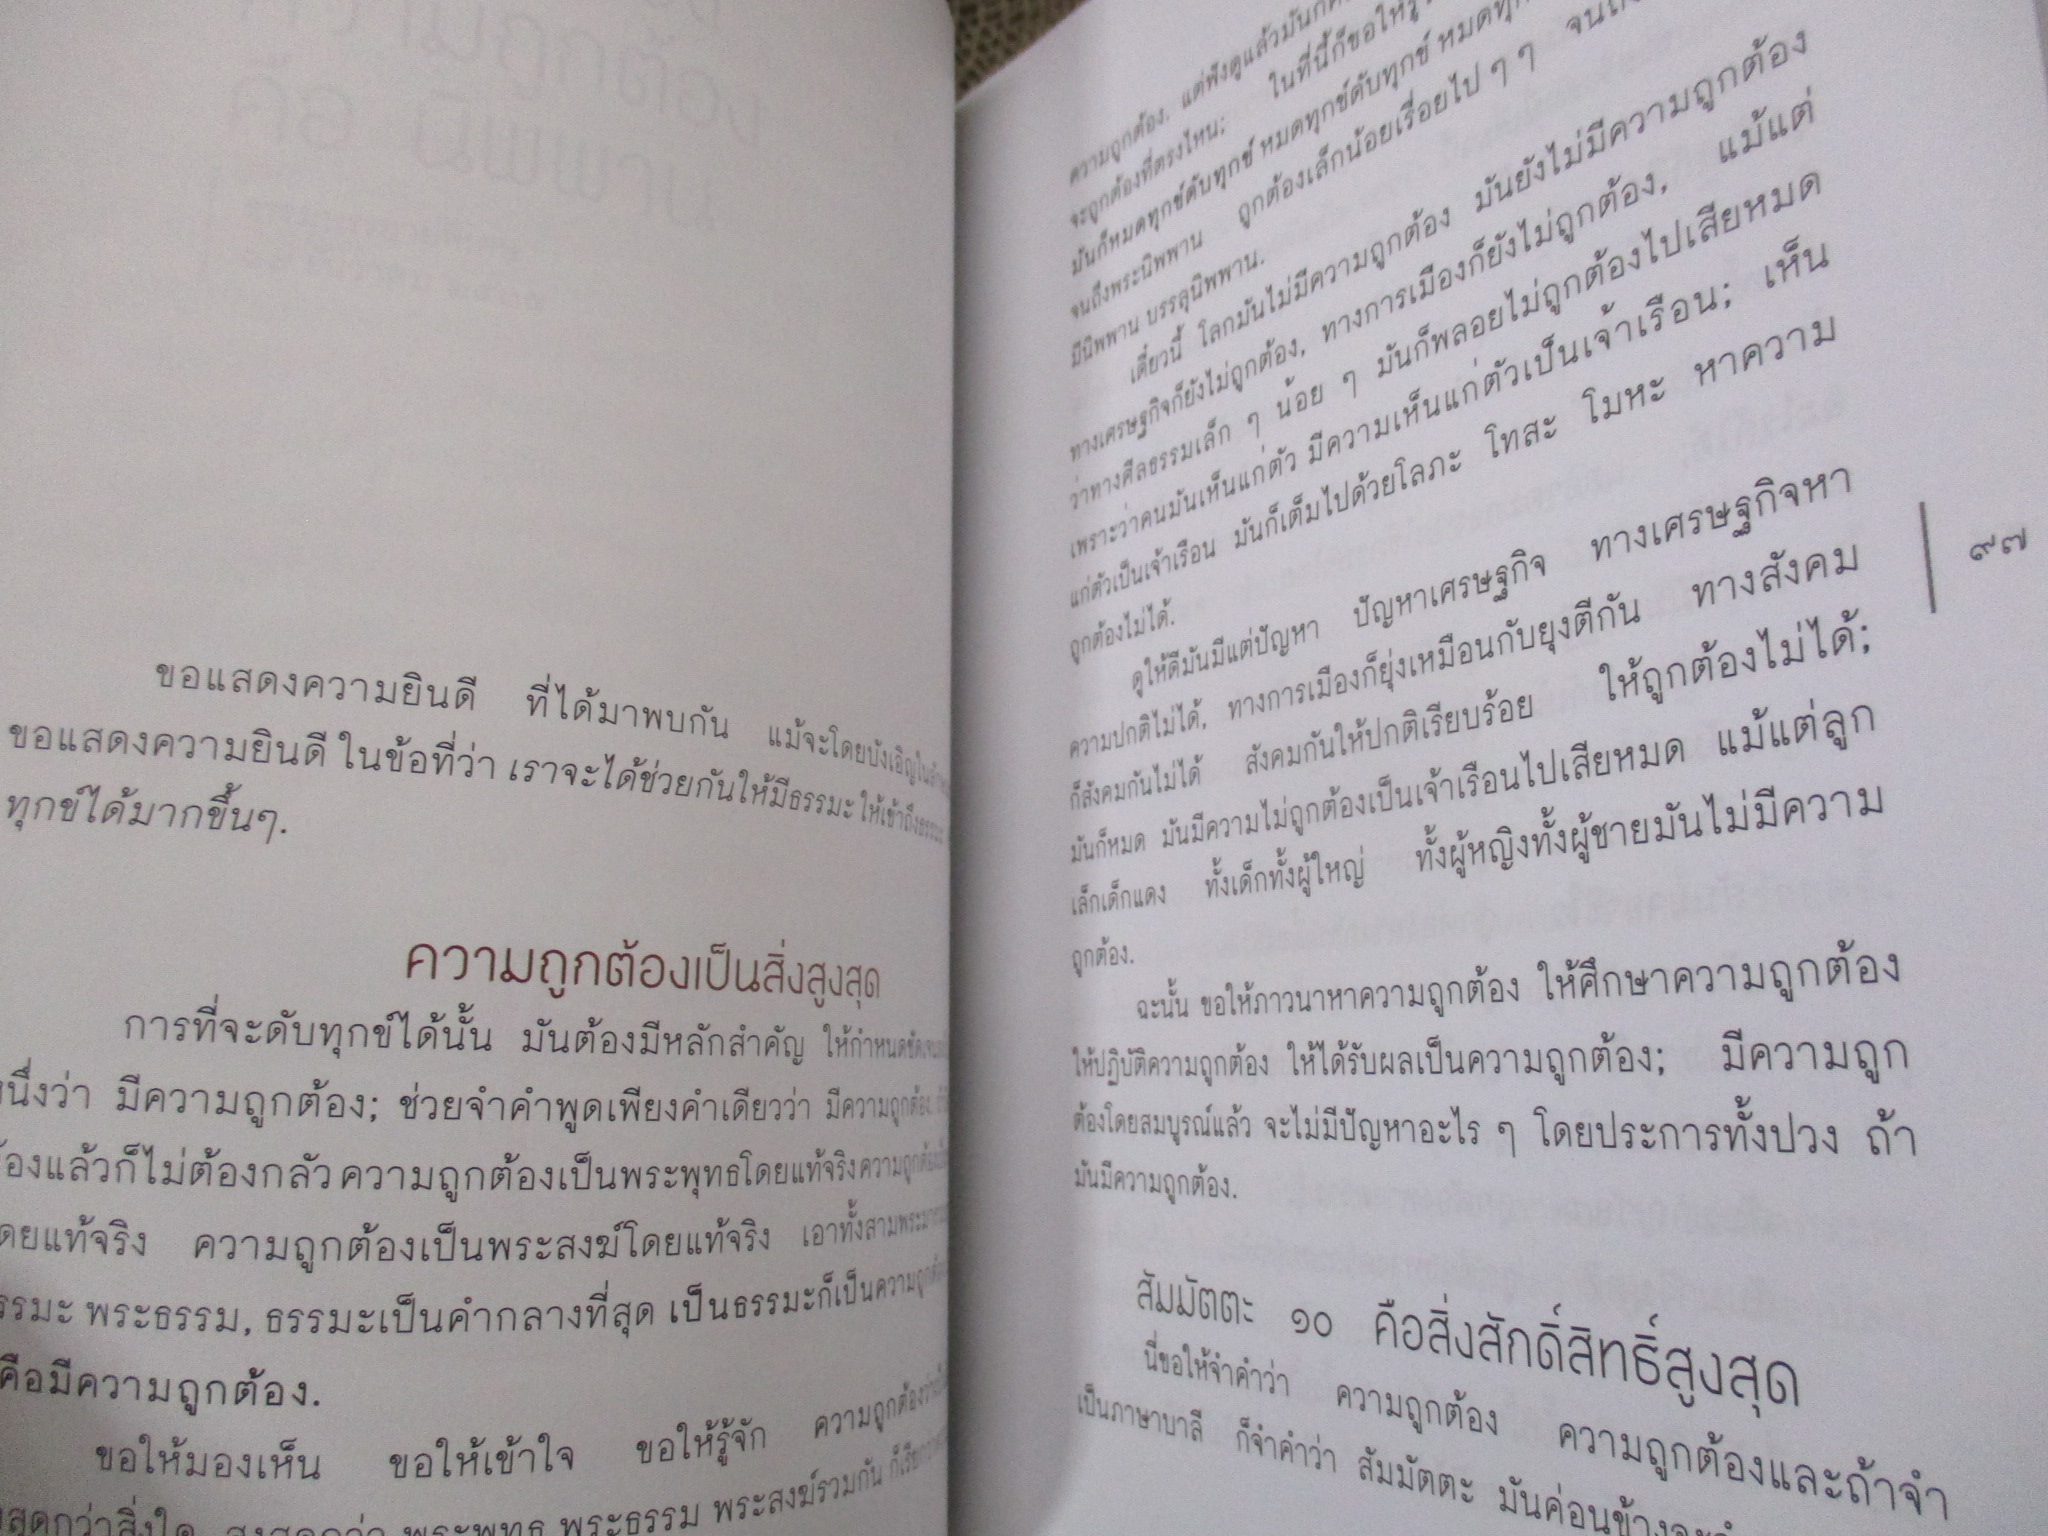 ขอแสดงความยินดี ที่ได้มาพบกัน แม้จะโดยบังเอิญ
ขอแสดงความยินดี ในข้อที่ว่า เราจะได้ช่วยกันให้มีธรรมะ ให้เข้าถึงธรรมะ
ทุกข์ได้มากขึ้นๆ.
ความถูกต้องเป็นสิ่งสูงสุด
การที่จะดับทุกข์ได้นั้น มันต้องมีหลักสำคัญ ให้กำหนด
นึ่งว่า มีความถูกต้อง; ช่วยจำคำพูดเพียงคำเดียวว่า มีความถูกต้อง.
องแล้วก็ไม่ต้องกลัว ความถูกต้องเป็นพระพุทธโดยแท้จริง ความถูกต้อง
ดยแท้จริง ความถูกต้องเป็นพระสงฆ์โดยแท้จริง เอาทั้งสามพระ
รรมะ พระธรรม, ธรรมะเป็นคำกลางที่สุด เป็นธรรมะก็เป็นความถูกต้อง
คือมีความถูกต้อง.
ขอให้มองเห็น ขอให้เข้าใจ ขอให้รู้จัก ความถูกต้อง
สุดกว่าสิ่งใด สูงสุดกว่า พระพุทธ พระธรรม พระสงฆ์รวมกัน
ความถูกต้อง. แต่ฟังดูแล้วมัน
จะถูกต้องที่ตรงไหน; ในที่นี้ก็ขอให้รู้
มันก็หมดทุกข์ดับทุกข์ หมดทุกข์ดับทุกข์ หมดทุกข์
จนถึงพระนิพพาน ถูกต้องเล็กน้อยเรื่อยไป ๆ ๆ จนถึง
มีนิพพาน บรรลุนิพพาน.
เดี๋ยวนี้ โลกมันไม่มีความถูกต้อง มันยังไม่มีความถูกต้อง
ทางเศรษฐกิจก็ยังไม่ถูกต้อง, ทางการเมืองก็ยังไม่ถูกต้อง, แม้แต่
ว่าทางศีลธรรมเล็ก ๆ น้อย ๆ มันก็พลอยไม่ถูกต้องไปเสียหมด
เพราะว่าคนมันเห็นแก่ตัว มีความเห็นแก่ตัวเป็นเจ้าเรือน; เห็น
แก่ตัวเป็นเจ้าเรือน มันก็เต็มไปด้วยโลภะ โทสะ โมหะ หาความ
ถูกต้องไม่ได้.
ดูให้ดีมันมีแต่ปัญหา ปัญหาเศรษฐกิจ ทางเศรษฐกิจหา
ความปกติไม่ได้, ทางการเมืองก็ยุ่งเหมือนกับยุงตีกัน ทางสังคม
ก็สังคมกันไม่ได้ สังคมกันให้ปกติเรียบร้อย ให้ถูกต้องไม่ได้;
มันก็หมด มันมีความไม่ถูกต้องเป็นเจ้าเรือนไปเสียหมด แม้แต่ลูก
เล็กเด็กแดง ทั้งเด็กทั้งผู้ใหญ่ ทั้งผู้หญิงทั้งผู้ชายมันไม่มีความ
ถูกต้อง.
ฉะนั้น ขอให้ภาวนาหาความถูกต้อง ให้ศึกษาความถูกต้อง
ให้ปฏิบัติความถูกต้อง ให้ได้รับผลเป็นความถูกต้อง; มีความถูก
ต้องโดยสมบูรณ์แล้ว จะไม่มีปัญหาอะไร ๆ โดยประการทั้งปวง ถ้า
มันมีความถูกต้อง.
สัมมัตตะ ๑๐ คือสิ่งศักดิ์สิทธิ์สูงสุด
นี่ขอให้จำคำว่า ความถูกต้อง ความถูกต้องและถ้าจำ
เป็นภาษาบาลี ก็จำคำว่า สัมมัตตะ มันค่อนข้าง
๙๗